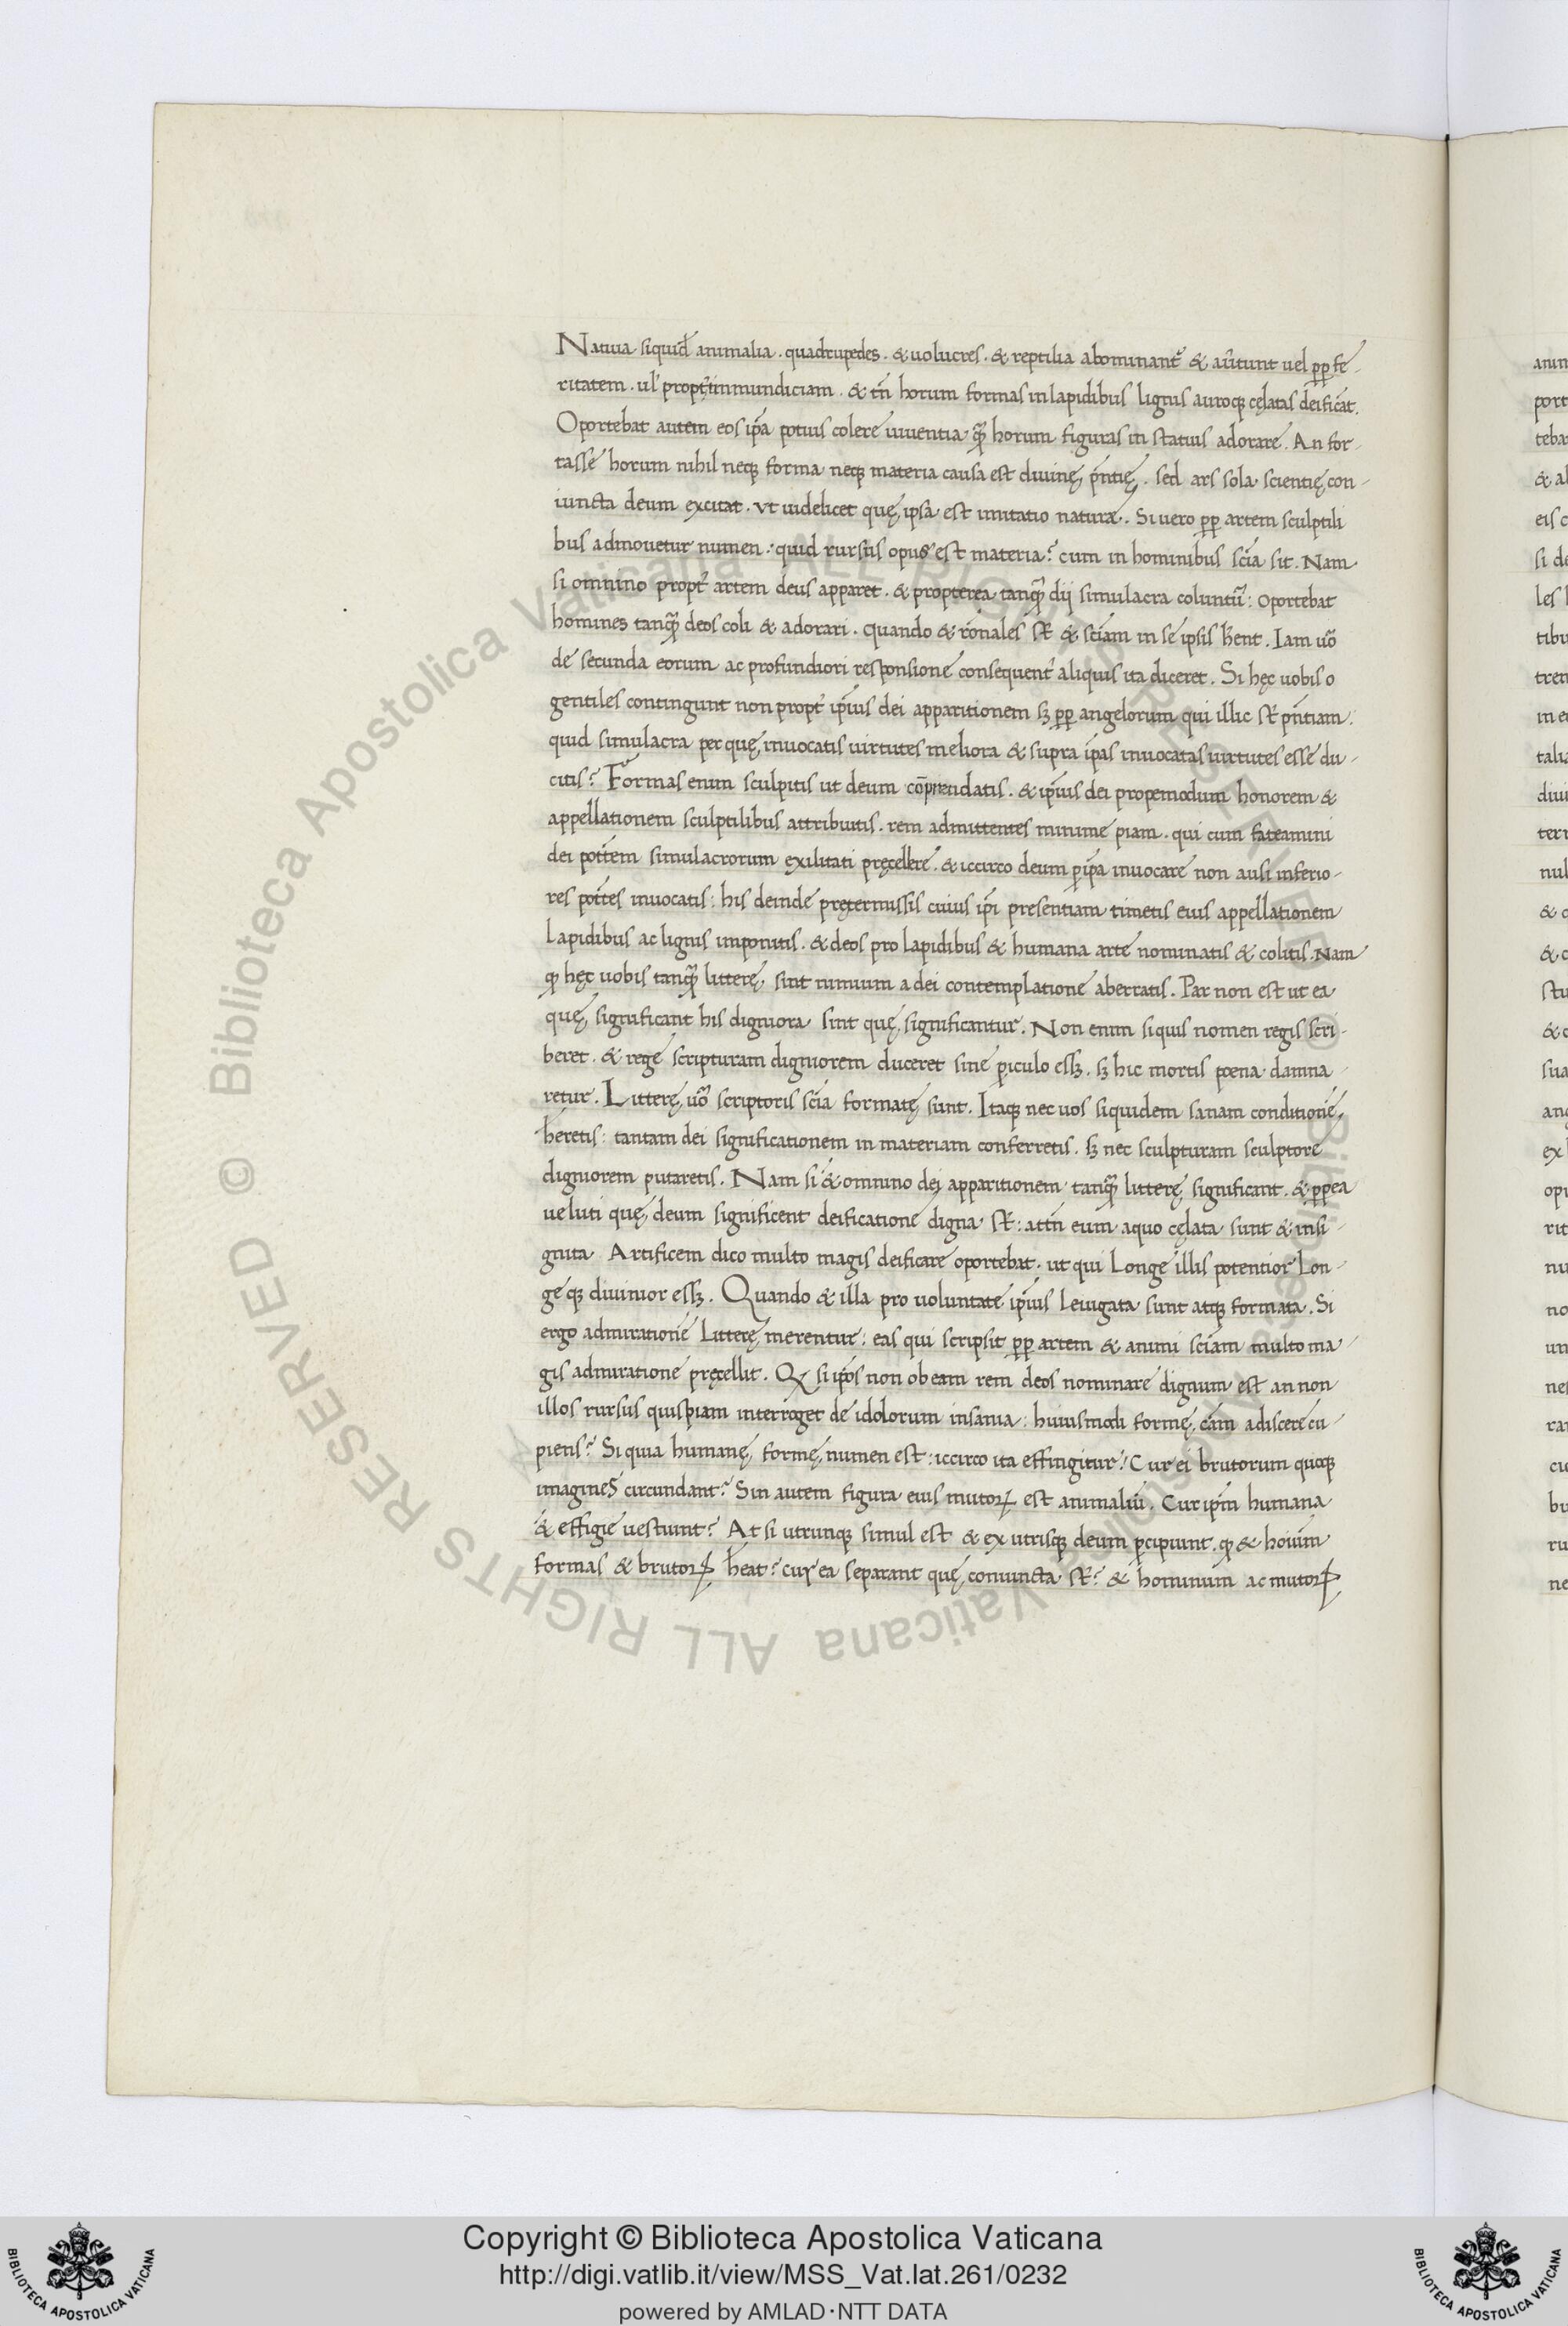 Natiua siquid̄ animalia . quadrupedes . & uolucres . & reptilia abominant᷑ & au̅tunt uel ꝓp fe-
ritatem . ul̓ propt̓ inmundiciam . & tn̄ horum formas in lapidibus lignis auroq; cęlatas deificāt.
Oportebat autem eos ip̄a potius colere uiuentia qꝫ̄ horum figuras in statuis adorare . An for-
tasse horum nihil neq; forma neq; materia causa est diuinę p̄ntię . sed ars sola scientię con-
iuncta deum excitat . vt uidelicet quę ipsa est imitatio naturæ . Si uero ꝓp artem sculptili
bus admouetur numen : quid rursus opus est materia? cum in hominibus scīa sit . Nam
si omnino propt̓ artem deus apparet . & propterea tanqꝫ̄ dij simulacra coluntū : oportebat
homines tanqꝫ̄ deos coli & adorari . quando & rōnales st̄ & scīam in se ipsis hēnt . Iam uō
de secunda eorum ac profundiori responsione consequent̓ aliquis ita diceret . Si hęc uobis o
gentiles contingunt non propt̓ ip̄ius dei apparitionem sꝫ ꝓp angelorum qui illic st̄ pn̄tiam :
quid simulacra per quę inuocatis uirtutes meliora & supra ip̄as inuocatas uirtutes esse du-
citis? Formas enim sculpitis ut deum cōprendatis . & ip̄ius dei propemodum honorem &
appellationem sculptilibus attribuitis . rem admittentes minime piam . qui cum fateamini
dei pot̄tem simulacrorum exilitati pręcellere . & iccirco deum ꝑ ip̄a inuocare non ausi inferio-
res pot̄tes inuocatis : his deinde prętermissis cuius ip̄i presentiam timetis eius appellationem
Lapidibus ac lignis imponitis . & deos pro lapidibus & humana arte nominatis & colitis . Nam
qꝫ hęc uobis tanqꝫ̄ litterę sint nimium a dei contemplatione aberratis . Par non est ut ea
quę significant his digniora sint quę significantur . Non enim siquis nomen regis scri-
beret . & rege scripturam digniorem duceret sine periculo essꝫ . sꝫ hic mortis poena damna-
retur . Litterę uō scriptoris scīa formatę sunt . Itaq; nec uos siquidem sanam conditionē
hēretis : tantam dei significationem in materiam conferretis . sꝫ nec sculpturam sculptore
digniorem putaretis . Nam si & omnino dei apparitionem tanqꝫ̄ litterę significant . & ꝓpea
ueluti quę deum significent deificatione digna st̄ : attn̄ eum a quo cęlata sunt & insi-
gnita Artificem dico multo magis deificare oportebat . ut qui Longe illis potentior Lon-
ge q; diuinior essꝫ . Quando & illa pro uoluntate ip̄ius Leuigata sunt atq; formata . Si
ergo admirationē Litterę merentur : eas qui scripsit ꝓp artem & animi scīam multo ma-
gis admiratione pręcellit . Qꝫ si ip̄os non ob eam rem deos nominare dignum est an non
illos rursus quispiam interroget de idolorum insania : huiusmodi formę cām adiscere cu-
piens? Si quia humanę formę numen est : iccirco ita effingitur? Cur ei brutorum quoq;
imagines circundant? Sin autem figura eius mutoꝝ est animaliū . Cur ip̄m humana
& effigie uestiunt? At si utrunq; simul est & ex utrisq; deum ꝑcipiunt . qꝫ & hoiūm
formas & brutoꝝ hēat? cur ea separant quę coniuncta st̄? & hominum ac mutoꝝ
Copyright © Biblioteca Apostolica Vaticana
http://digi.vatlib.it/view/MSS_Vat.lat.261/0232
powered by AMLAD·NTT DATA